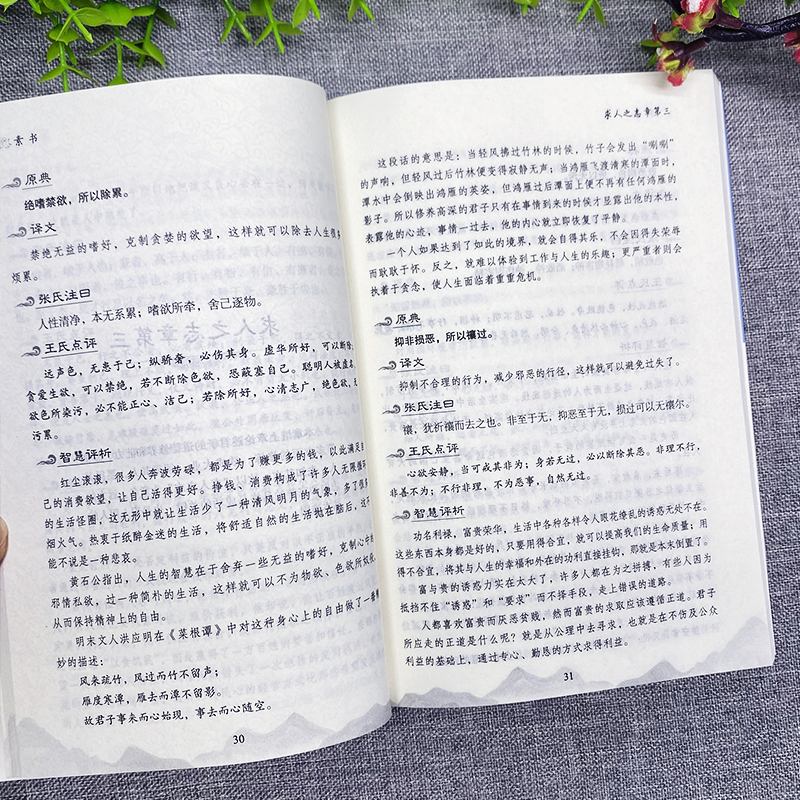 素书
原典
绝嗜禁欲,所以除累。
译文
禁绝无益的嗜好,克制贪婪的欲望,这样就可以除去人生很多
烦累。
张氏注曰
人性清净,本无系累;嗜欲所牵,舍己逐物。
王氏点评
远声色,无患于己;纵骄奢,必伤其身。虚华所好,可以断除;
贪爱生欲,可以禁绝,若不断除色欲,恐蔽塞自己。聪明人被虚名、
欲色所染污,必不能正心、洁己;若除所好,心清志广,绝色欲,无
污累。
智慧评析
红尘滚滚,很多人奔波劳碌,都是为了赚更多的钱,以此满足自
己的消费欲望,让自己活得更好。挣钱、消费构成了许多人无限循环
的生活怪圈,这无形中就让生活少了一种清风明月的气象,多了很多
烟火气。热衷于纸醉金迷的生活,将舒适自然的生活抛在脑后,这不
能不说是一种悲哀。
黄石公指出,人生的智慧在于舍弃一些无益的嗜好,克制心中的
邪情私欲,过一种简朴的生活,这样就可以不为物欲、色欲所奴役,
从而保持精神上的自由。
明末文人洪应明在《菜根谭》中对这种身心上的自由做了一番精
妙的描述:
风来疏竹,风过而竹不留声;
雁度寒潭,雁去而潭不留影。
故君子事来而心始现,事去而心随空。
30
求人之志章第三
这段话的意思是:当轻风拂过竹林的时候,竹子会发出“唰唰”
的声响,但轻风过后竹林便变得寂静无声;当鸿雁飞渡清寒的潭面时,
潭水中会倒映出鸿雁的英姿,但鸿雁过后潭面上便不再有任何鸿雁的
影子。所以修养高深的君子只有在事情到来的时候才显露出他的本性,
表露他的心迹,事情一过去,他的内心就立即恢复了平静。
一个人如果达到了如此的境界,就会自得其乐,不会因得失荣辱
而耿耿于怀。反之,就难以体验到工作与人生的乐趣;更严重者则会
执着于贪念,使人生面临着重重危机。
原典
抑非损恶,所以禳过。
译文
抑制不合理的行为,减少邪恶的行径,这样就可以避免过失了。
张氏注曰
禳,犹祈禳而去之也。非至于无,抑恶至于无,损过可以无禳尔。
王氏点评
心欲安静,当可戒其非为;身若无过,必以断除其恶。非理不行,
非善不为;不行非理,不为恶事,自然无过。
智慧评析
功名利禄,富贵荣华,生活中各种各样令人眼花缭乱的诱惑无处不在。
这些东西本身都是好的,只要用得合宜,就可以提高我们的生命质量;用
得不合宜,将其与人生的幸福和外在的功利直接挂钩,那就是本末倒置了。
富与贵的诱惑力实在太大了,许多人都在为之拼搏,有些人因为
抵挡不住“诱惑”和“要求”而不择手段,走上错误的道路。
人都喜欢富贵而厌恶贫贱,然而富贵的求取应该遵循正道。君子
所应走的正道是什么呢?就是从公理中去寻求,也就是在不伤及公众
利益的基础上,通过专心、勤恳的方式求得利益。
31